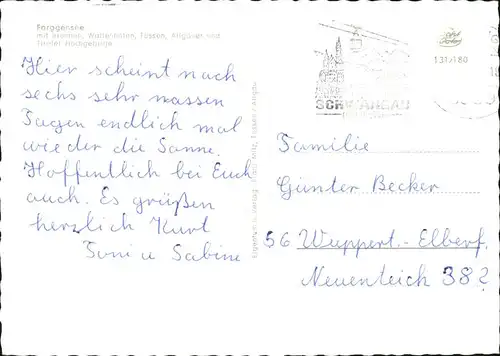 Forggensee
mit Brunnen, Waltenhofen, Füssen, Allgäuer und
Tiroler Hochgebirge
Hier scheint nach
sechs sehr nassen
Tagen endlich mal
wieder die Sonne.
Hoffentlich bei Euch
auch. Es grüßen
herzlich Kurt
Toni u Sabine
SCHWANGAU
131/180
Familie
Günter Becker
56 Wuppert.-Elberf.
Neuenteich 382